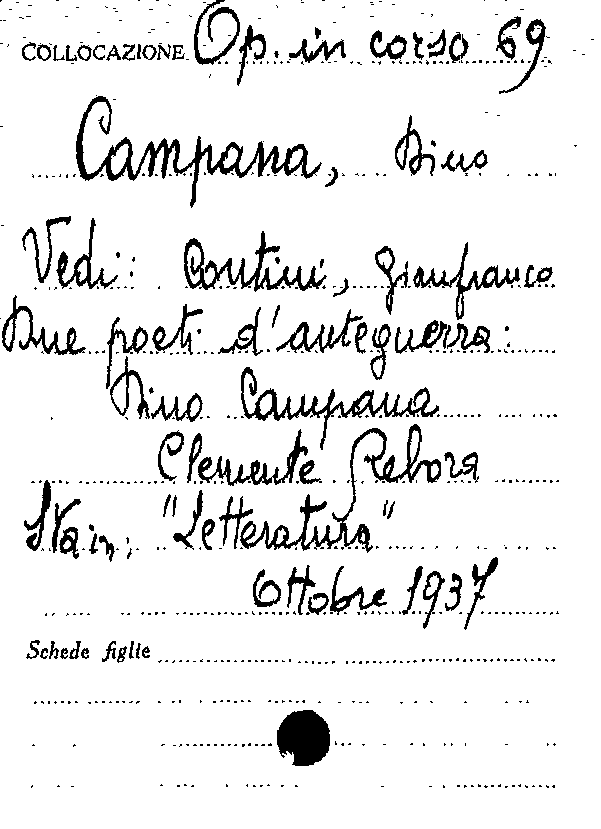 COLLOCAZIONE Op. in corso 69
Campana, Dino
Vedi: Contini, Gianfranco
Due poeti d'anteguerra:
Dino Campana
Clemente Rebora
Sta in: "Letteratura"
Ottobre 1937
Schede figlie